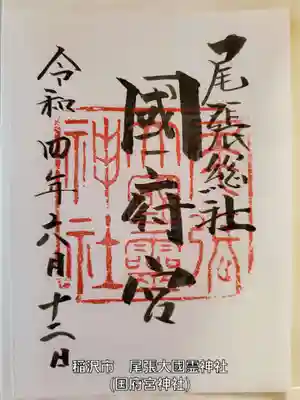 尾張総社
國府宮
令和四年六月十二日
神社
稲沢市　尾張大國霊神社
(国府宮神社)